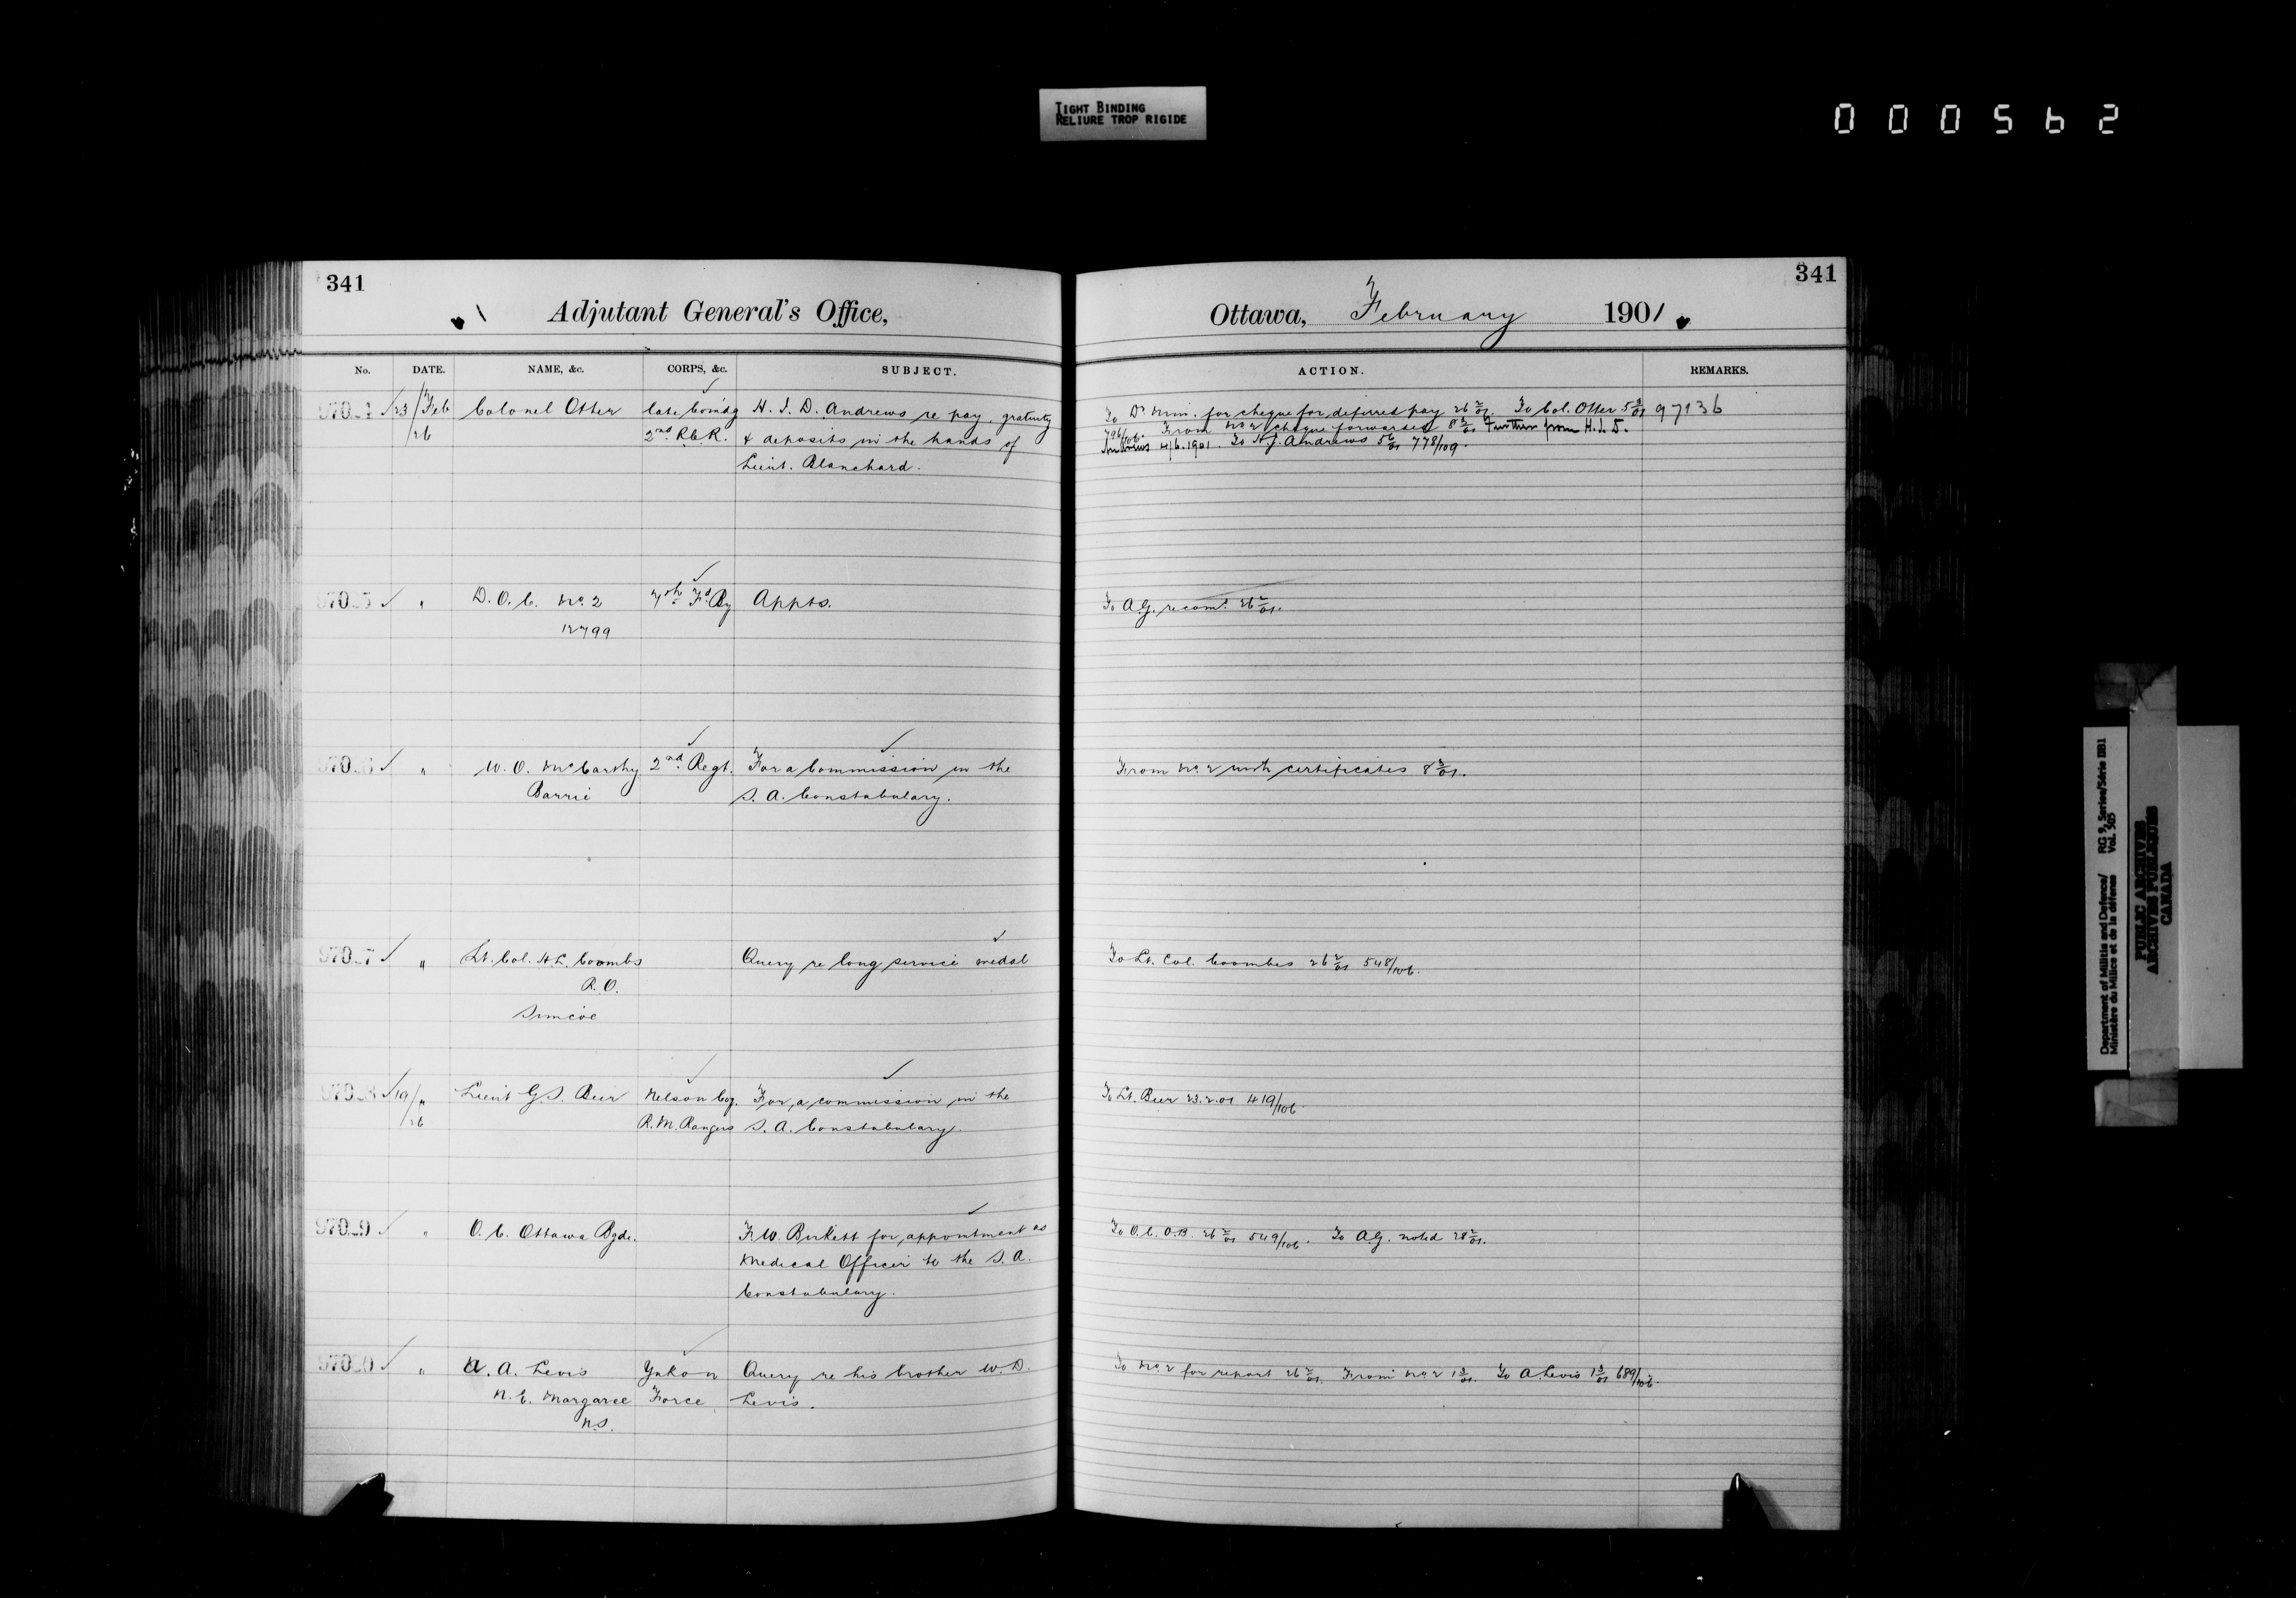 TIGHT BINDING
RELIURE TROP RIGIDE
000562
341
Adjutant General's Office,
No. DATE. NAME, &c. CORPS, &c. SUBJECT.
23/Feb Colonel Otter late Com'dg H. J. D. Andrews re pay, gratuity
/26 2nd R.C.R. & deposits in the hands of
Lieut. Blanchard.
" D. O. C. No. 2 7th Fd. By Appts.
12799
" W. O. McCarthy 2nd Regt. For a Commission in the
Barrie S. A. Constabulary.
" Lt. Col. H. L. Coombs Query re long service medal
R. O.
Simcoe
19/" Lieut G. S. Beer Nelson Coy. For a commission in the
/26 R. M. Rangers S. A. Constabulary.
9709 " O. C. Ottawa Bgde. F. W. Birkett for appointment as
Medical Officer to the S. A.
Constabulary.
" A. A. Levis Yukon Query re his brother W. D.
N. E. Margaree Force Levis.
N.S.
341
Ottawa, February 1901
ACTION. REMARKS.
To Dr. Min. for cheque for deferred pay 26/2/01. To Col. Otter 5/3/01 97136
796/106. From No 2 cheque forwarded 8/3/01 Further from H. J. D.
Andrews 4/6.1901. To H. J. Andrews 5/6/01 778/109.
To A.G. recomd. 26/2/01.
From No. 2 with certificates 8/3/01.
To Lt. Col. Coombes 26/2/01 548/106.
To Lt. Beer 23.2.01 419/106
To O.C. O.B. 26/2/01 549/106. To A.G. noted 28/2/01.
To No. 2 for report 26/2/01. From No. 2 1/3/01. To A Levis 1/3/01 689/106.
Department of Militia and Defence/ RG 9, Series/Série IIB1
Ministère du Milice et de la défense Vol. 505
PUBLIC ARCHIVES
ARCHIVES PUBLIQUES
CANADA